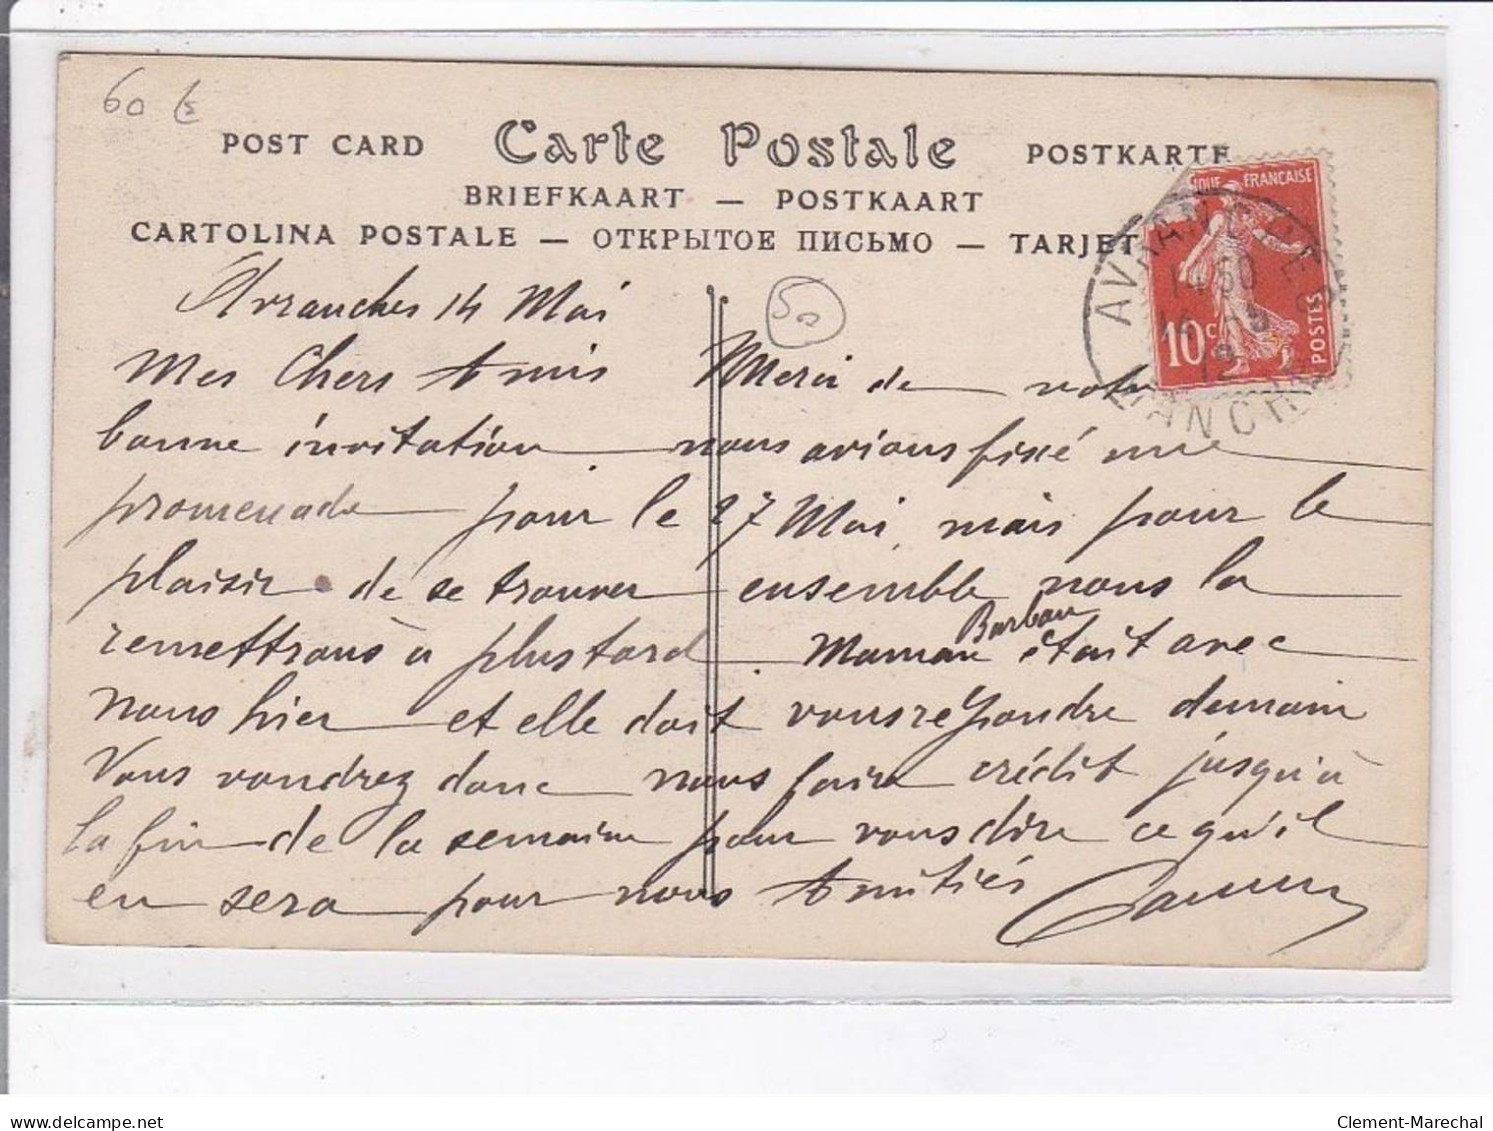 60 €
POST CARD Carte Postale POSTKARTE
BRIEFKAART — POSTKAART
CARTOLINA POSTALE — ОТКРЫТОЕ ПИСЬМО — TARJET
QUE FRANÇAISE
10c POSTES
AVRANCHES
14 50
14 -5
12
MANCHE
50
Avranches 14 Mai
Mes Chers Amis Merci de votre
bonne invitation. nous avions fixé une
promenade pour le 27 Mai, mais pour le
plaisir de se trouver ensemble nous la
remettrons à plus tard. Maman Barbau était avec
nous hier et elle doit vous répondre demain
Vous voudrez donc nous faire crédit jusqu'à
la fin de la semaine pour vous dire ce qu'il
en sera pour nous Amitiés
delcampe.net
Clement-Marechal